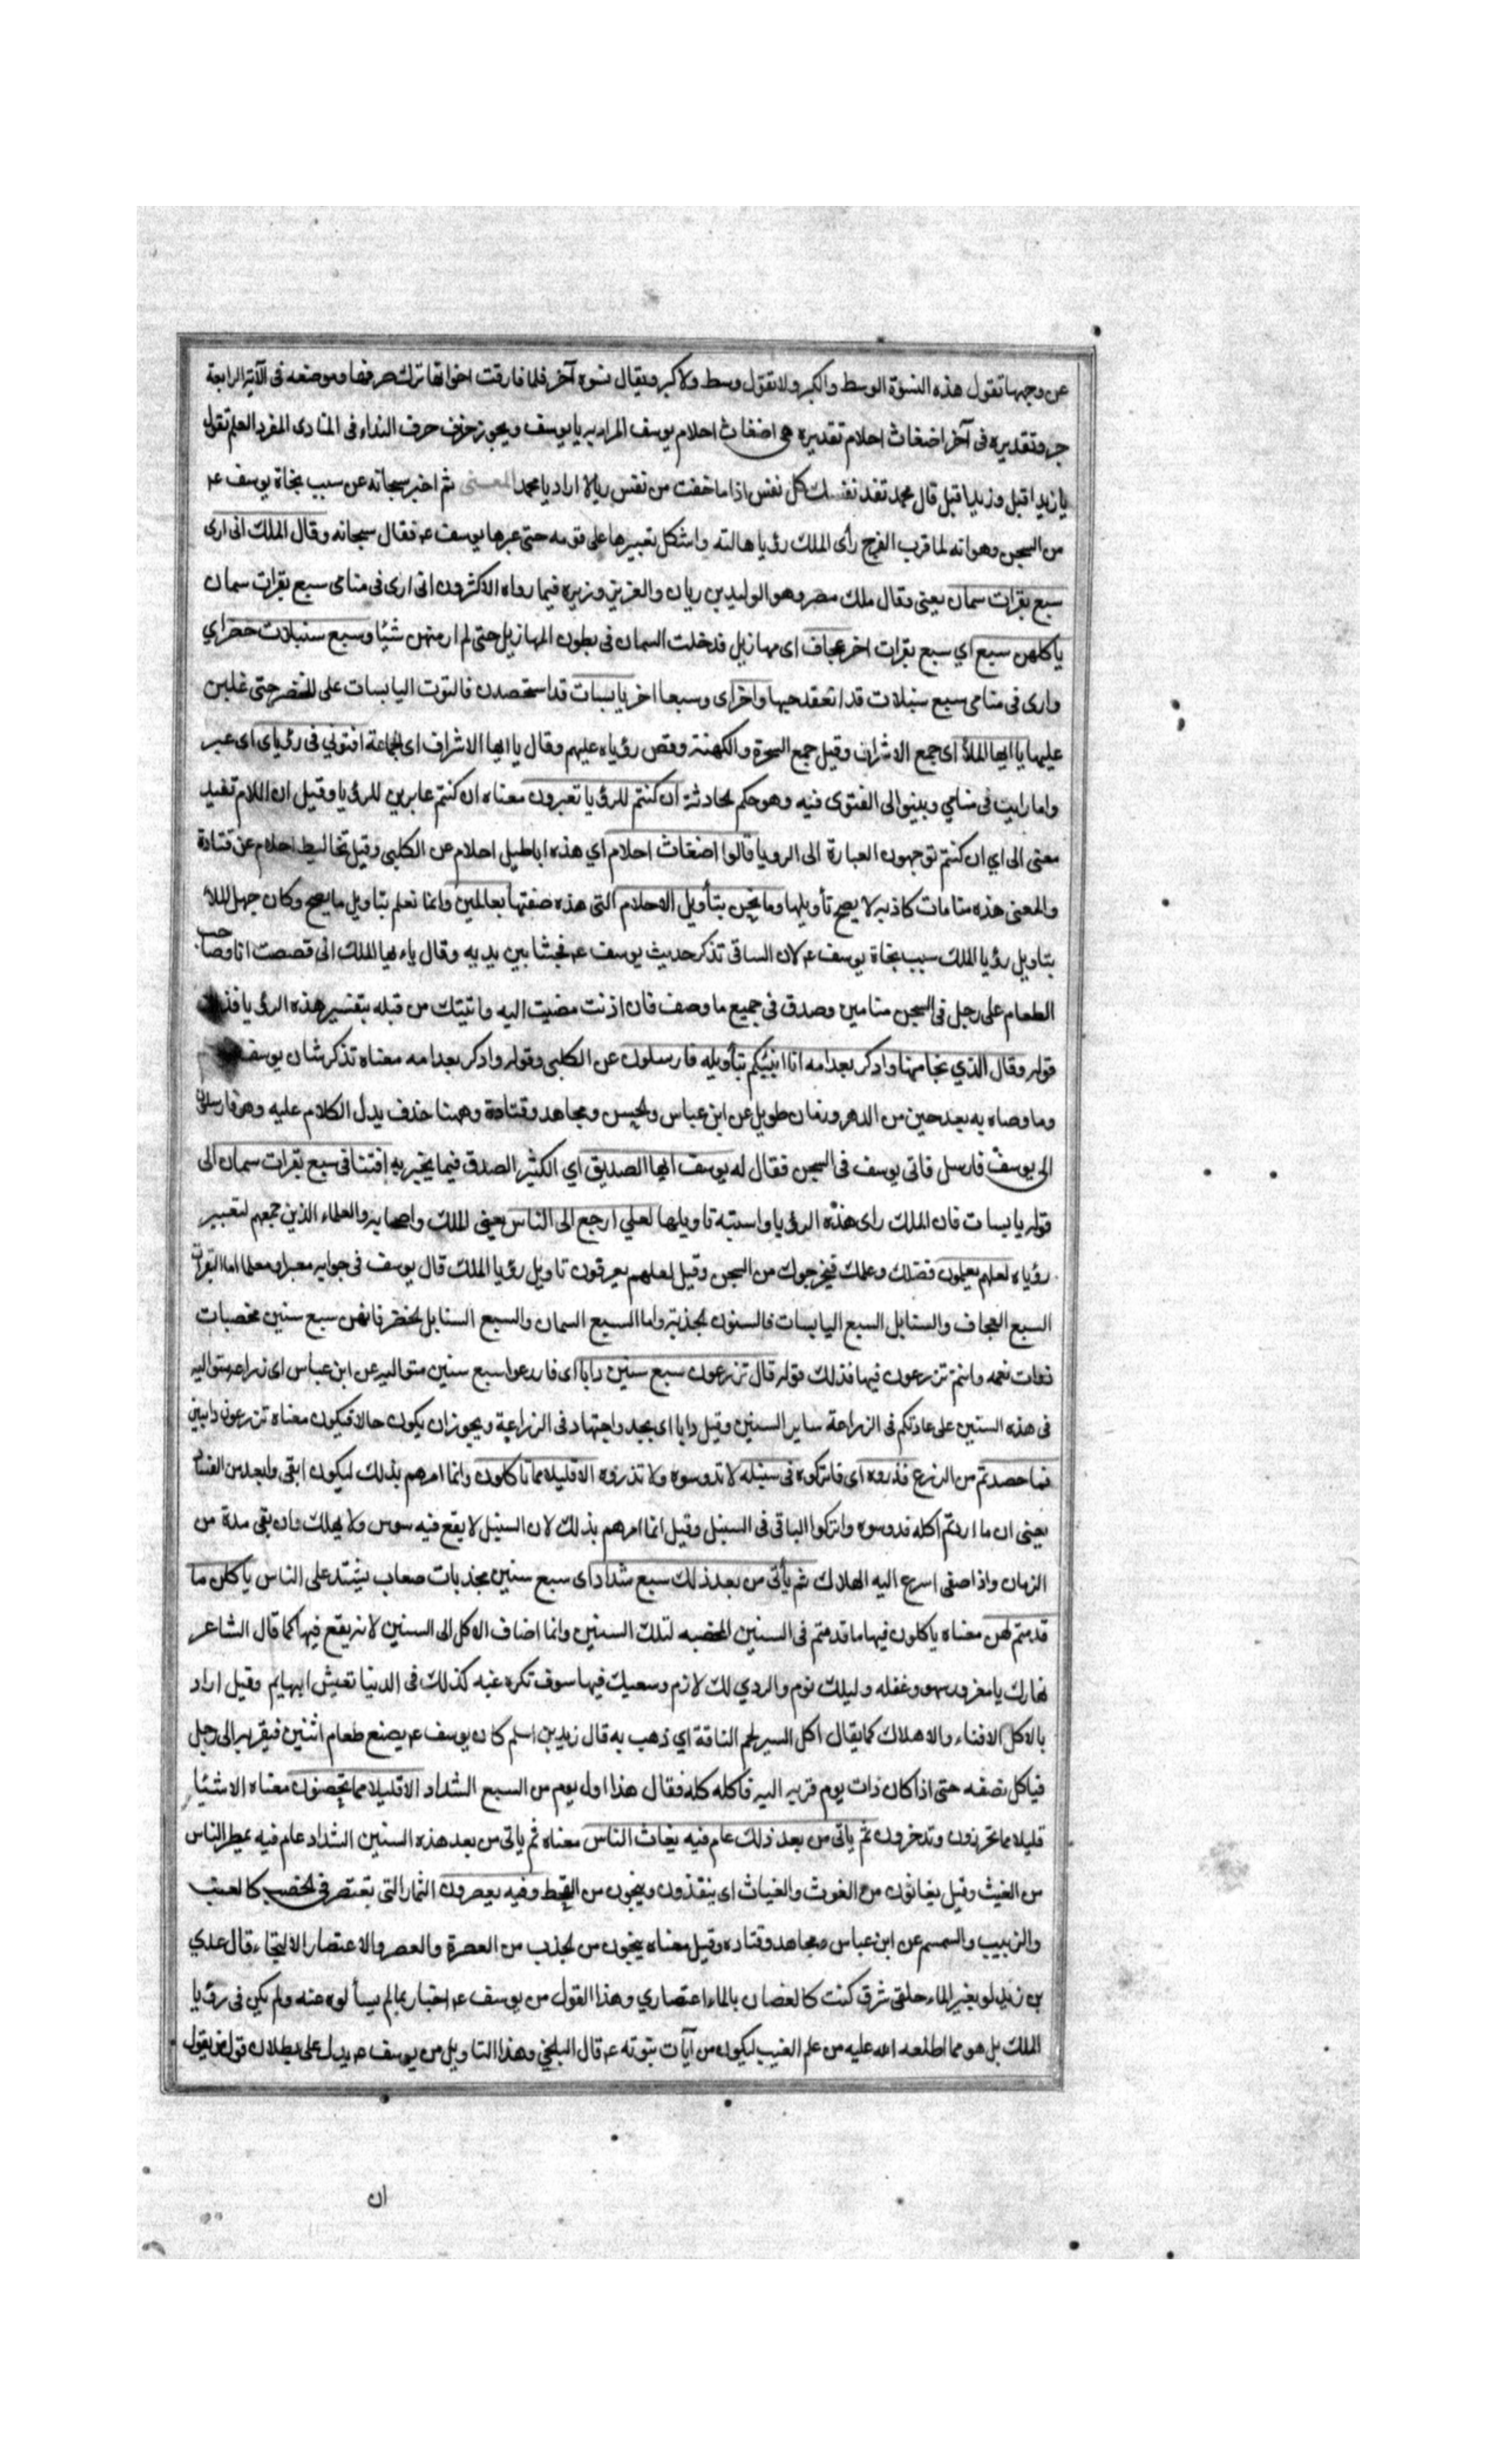 عن وجهها تقول هذه النسوة الوسط والكبر ولا تقول وسط ولا كبر ويقال نسوه آخر فلما فارقت اخواتها ترك صرفها وموضعه في الآية الرابعة
جر وتقديره في آخر اضغاث احلام تقديره هي اضغاث احلام يوسف المراد به يا يوسف ويجوز حذف حرف النداء في المنادى المفرد العلم تقول
يا زيد اقبل وزيد اقبل قال محمد تفد نفسك كل نفس اذا ما خفت من نفس ربالا اراد يا محمد المعنى ثم اخبر سبحانه عن سبب نجاة يوسف عم
من السجن وهو انه لما قرب الفرج رأى الملك رؤيا هالته واشكل تعبيرها على قومه حتى عبرها يوسف عم فقال سبحانه وقال الملك انى ارى
سبع بقرات سمان يعنى وقال ملك مصر وهو الوليد بن ريان والعزيز وزيره فيما رواه الاكثرون انى ارى في منامى سبع بقرات سمان
ياكلهن سبع اي سبع بقرات اخر عجاف اى مهازيل فدخلت السمان في بطون المهازيل حتى لم ار منهن شيئا وسبع سنبلات خضر اي
وارى في منامى سبع سنبلات قد انعقد حبها واخر اى وسبعا اخر يابسات قد استحصدن فالتوت اليابسات على الخضر حتى غلبن
عليها يا ايها الملأ اى جمع الاشراف وقيل جمع السحرة والكهنة وقص رؤياه عليهم وقال يا ايها الاشراف اى الجماعة افتوني في رؤياى اى عبر
واما رايت في منامي وبينوا لى الفتوى فيه وهو حكم لحادثة ان كنتم للرؤيا تعبرون معناه ان كنتم عابرين للرؤيا وقيل ان اللام تفيد
معنى الى اي ان كنتم توجهون العبارة الى الرويا قالوا اضغاث احلام اي هذه اباطيل احلام عن الكلبى وقيل تخاليط احلام عن قتادة
والمعنى هذه منامات كاذبه لا يصح تأويلها وما نحن بتأويل الاحلام التى هذه صفتها بعالمين وانما نعلم بتاويل ما يصح وكان جهل الملأ
بتاويل رؤيا الملك سبب نجاة يوسف عم لان الساقى تذكر حديث يوسف عم فجثا بين يديه وقال ياءيها الملك انى قصصت انا وصاحب
الطعام على رجل في السجن منامين وصدق في جميع ما وصف فان اذنت مضيت اليه واتيتك من قبله بتفسير هذه الرؤيا فذلك
قوله وقال الذي نجا منهما وادكر بعد امه انا انبئكم بتأويله فارسلون عن الكلبى وقوله وادكر بعد امه معناه تذكر شان يوسف
وما وصاه به بعد حين من الدهر وزمان طويل عن ابن عباس والحسن ومجاهد وقتادة وههنا حذف يدل الكلام عليه وهو فارسلون
الى يوسف فارسل فاتى يوسف في السجن فقال له يوسف ايها الصديق اي الكثير الصدق فيما يخبر به افتنا في سبع بقرات سمان الى
قوله يابسات فان الملك راى هذه الرؤيا واشتبه تاويلها لعلي ارجع الى الناس يعني الملك واصحابه والعلماء الذين جمعهم لتعبير
رؤياه لعلهم يعلمون فضلك وعلمك فيخرجوك من السجن وقيل لعلهم يعرفون تاويل رؤيا الملك قال يوسف في جوابه معبرا ومعلما اما البقرات
السبع العجاف والسنابل السبع اليابسات فالسنون الجدبة واما السبع السمان والسبع السنابل الخضر فانهن سبع سنين مخصبات
ذوات نعمه وانتم تزرعون فيها فذلك قوله قال تزرعون سبع سنين دابا اى فازرعوا سبع سنين متواليه عن ابن عباس اى زراعه متواليه
في هذه السنين على عادتكم في الزراعة ساير السنين وقيل دابا اى بجد واجتهاد في الزراعة ويجوز ان يكون حالا فيكون معناه تزرعون دابين
فما حصدتم من الزرع فذروه اى فاتركوه في سنبله لا تدوسوه ولا تذروه الا قليلا مما تاكلون وانما امرهم بذلك ليكون ابقى وابعد من الفساد
يعنى ان ما اردتم اكله فدوسوه واتركوا الباقى في السنبل وقيل انما امرهم بذلك لان السنبل لا يقع فيه سوس ولا يهلك وان بقى مدة من
الزمان واذا صفى اسرع اليه الهلاك ثم يأتى من بعد ذلك سبع شداد اى سبع سنين مجدبات صعاب يشتد على الناس ياكلن ما
قدمتم لهن معناه ياكلون فيها ما قدمتم في السنين المخصبه لتلك السنين وانما اضاف الاكل الى السنين لانه يقع فيها كما قال الشاعر
نهارك يا مغرور سهو وغفله وليلك نوم والردي لك لازم وسعيك فيها سوف تكره غبه كذلك في الدنيا تعيش البهايم وقيل اراد
بالاكل الافناء والاهلاك كما يقال اكل السير لحم الناقة اي ذهب به قال زيد بن اسلم كان يوسف عم يصنع طعام اثنين فيقربه الى رجل
فياكل نصفه حتى اذا كان ذات يوم قربه اليه فاكله كله فقال هذا اول يوم من السبع الشداد الا قليلا مما تحصنون معناه الا شيئا
قليلا مما تحرزون وتدخرون ثم ياتى من بعد ذلك عام فيه يغاث الناس معناه ثم ياتى من بعد هذه السنين الشداد عام فيه يمطر الناس
من الغيث وقيل يغاثون من الغوث والغياث اى ينقذون وينجون من القحط وفيه يعصرون الثمار التى تعتصر في الخصب كالعنب
والزبيب والسمسم عن ابن عباس ومجاهد وقتاده وقيل معناه ينجون من الجدب من العصرة والعصر والاعتصار الالتجاء قال عدي
بن زيد لو بغير الماء حلقى شرق كنت كالغصان بالماء اعتصاري وهذا القول من يوسف عم اخبار بما لم يسألوه عنه ولم يكن في رؤيا
الملك بل هو مما اطلعه الله عليه من علم الغيب ليكون من آيات نبوته عم قال البلخي وهذا التاويل من يوسف عم يدل على بطلان قول من يقول
ان